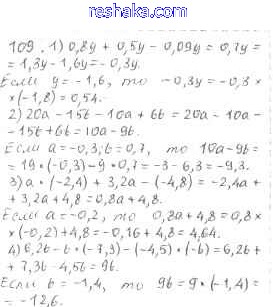 reshaka.com
109. 1) 0,8y + 0,5y - 0,09y = 0,7y =
= 1,3y - 1,6y = - 0,3y.
Если y = -1,6, то -0,3y = -0,3 ×
×(-1,8) = 0,54.
2) 20a - 15b - 10a + 6b = 20a - 10a -
- 15b + 6b = 10a - 9b.
Если a = -0,3; b = 0,7, то 10a - 9b =
= 19 • (-0,3) - 9 • 0,7 = -3 - 6,3 = -9,3.
3) a • (-2,4) + 3,2a - (-4,8) = -2,4a +
+ 3,2a + 4,8 = 0,8a + 4,8.
Если a = -0,2, то 0,8a + 4,8 = 0,8 ×
× (-0,2) + 4,8 = -0,16 + 4,8 = 4,64.
4) 6,2b - b • (-7,3) - (-4,5) • (-b) = 6,2b +
+ 7,3b - 4,5b = 9b.
Если b = -1,4, то 9b = 9 • (-1,4) =
= -12,6.